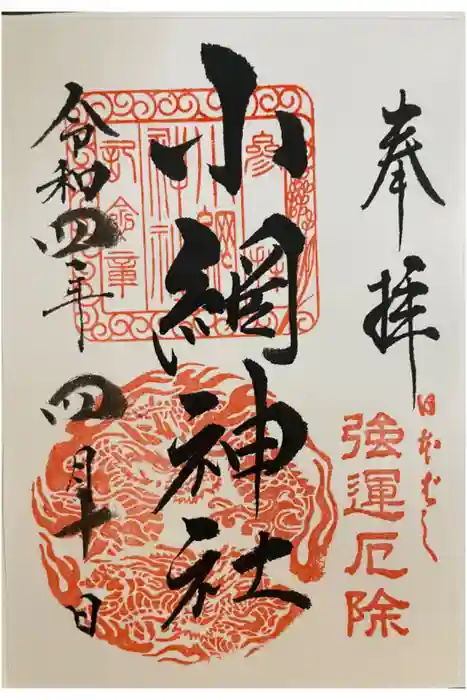 奉拝
日本ばし
強運厄除
小網神社
令和四年
四月十日